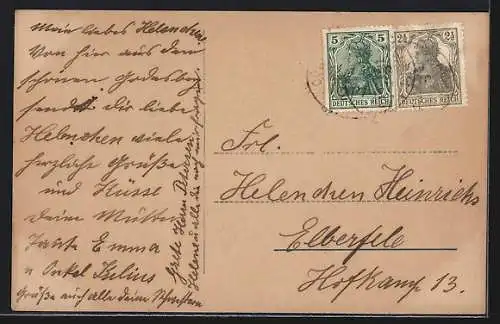 Mein liebes Helenchen!
Von hier aus dem
schönen Godesberg
sendet Dir liebe
Helenchen viele
herzliche Grüße
und Küsse
deine Mutter
Tante Emma
u Onkel Julius
Grüße auch alle deine Schwestern
Grete Herrn Petersen
5 5
DEUTSCHES REICH
2½ 2½
DEUTSCHES REICH
Frl.
Helenchen Heinrichs
Elberfeld
Hofkamp 13.